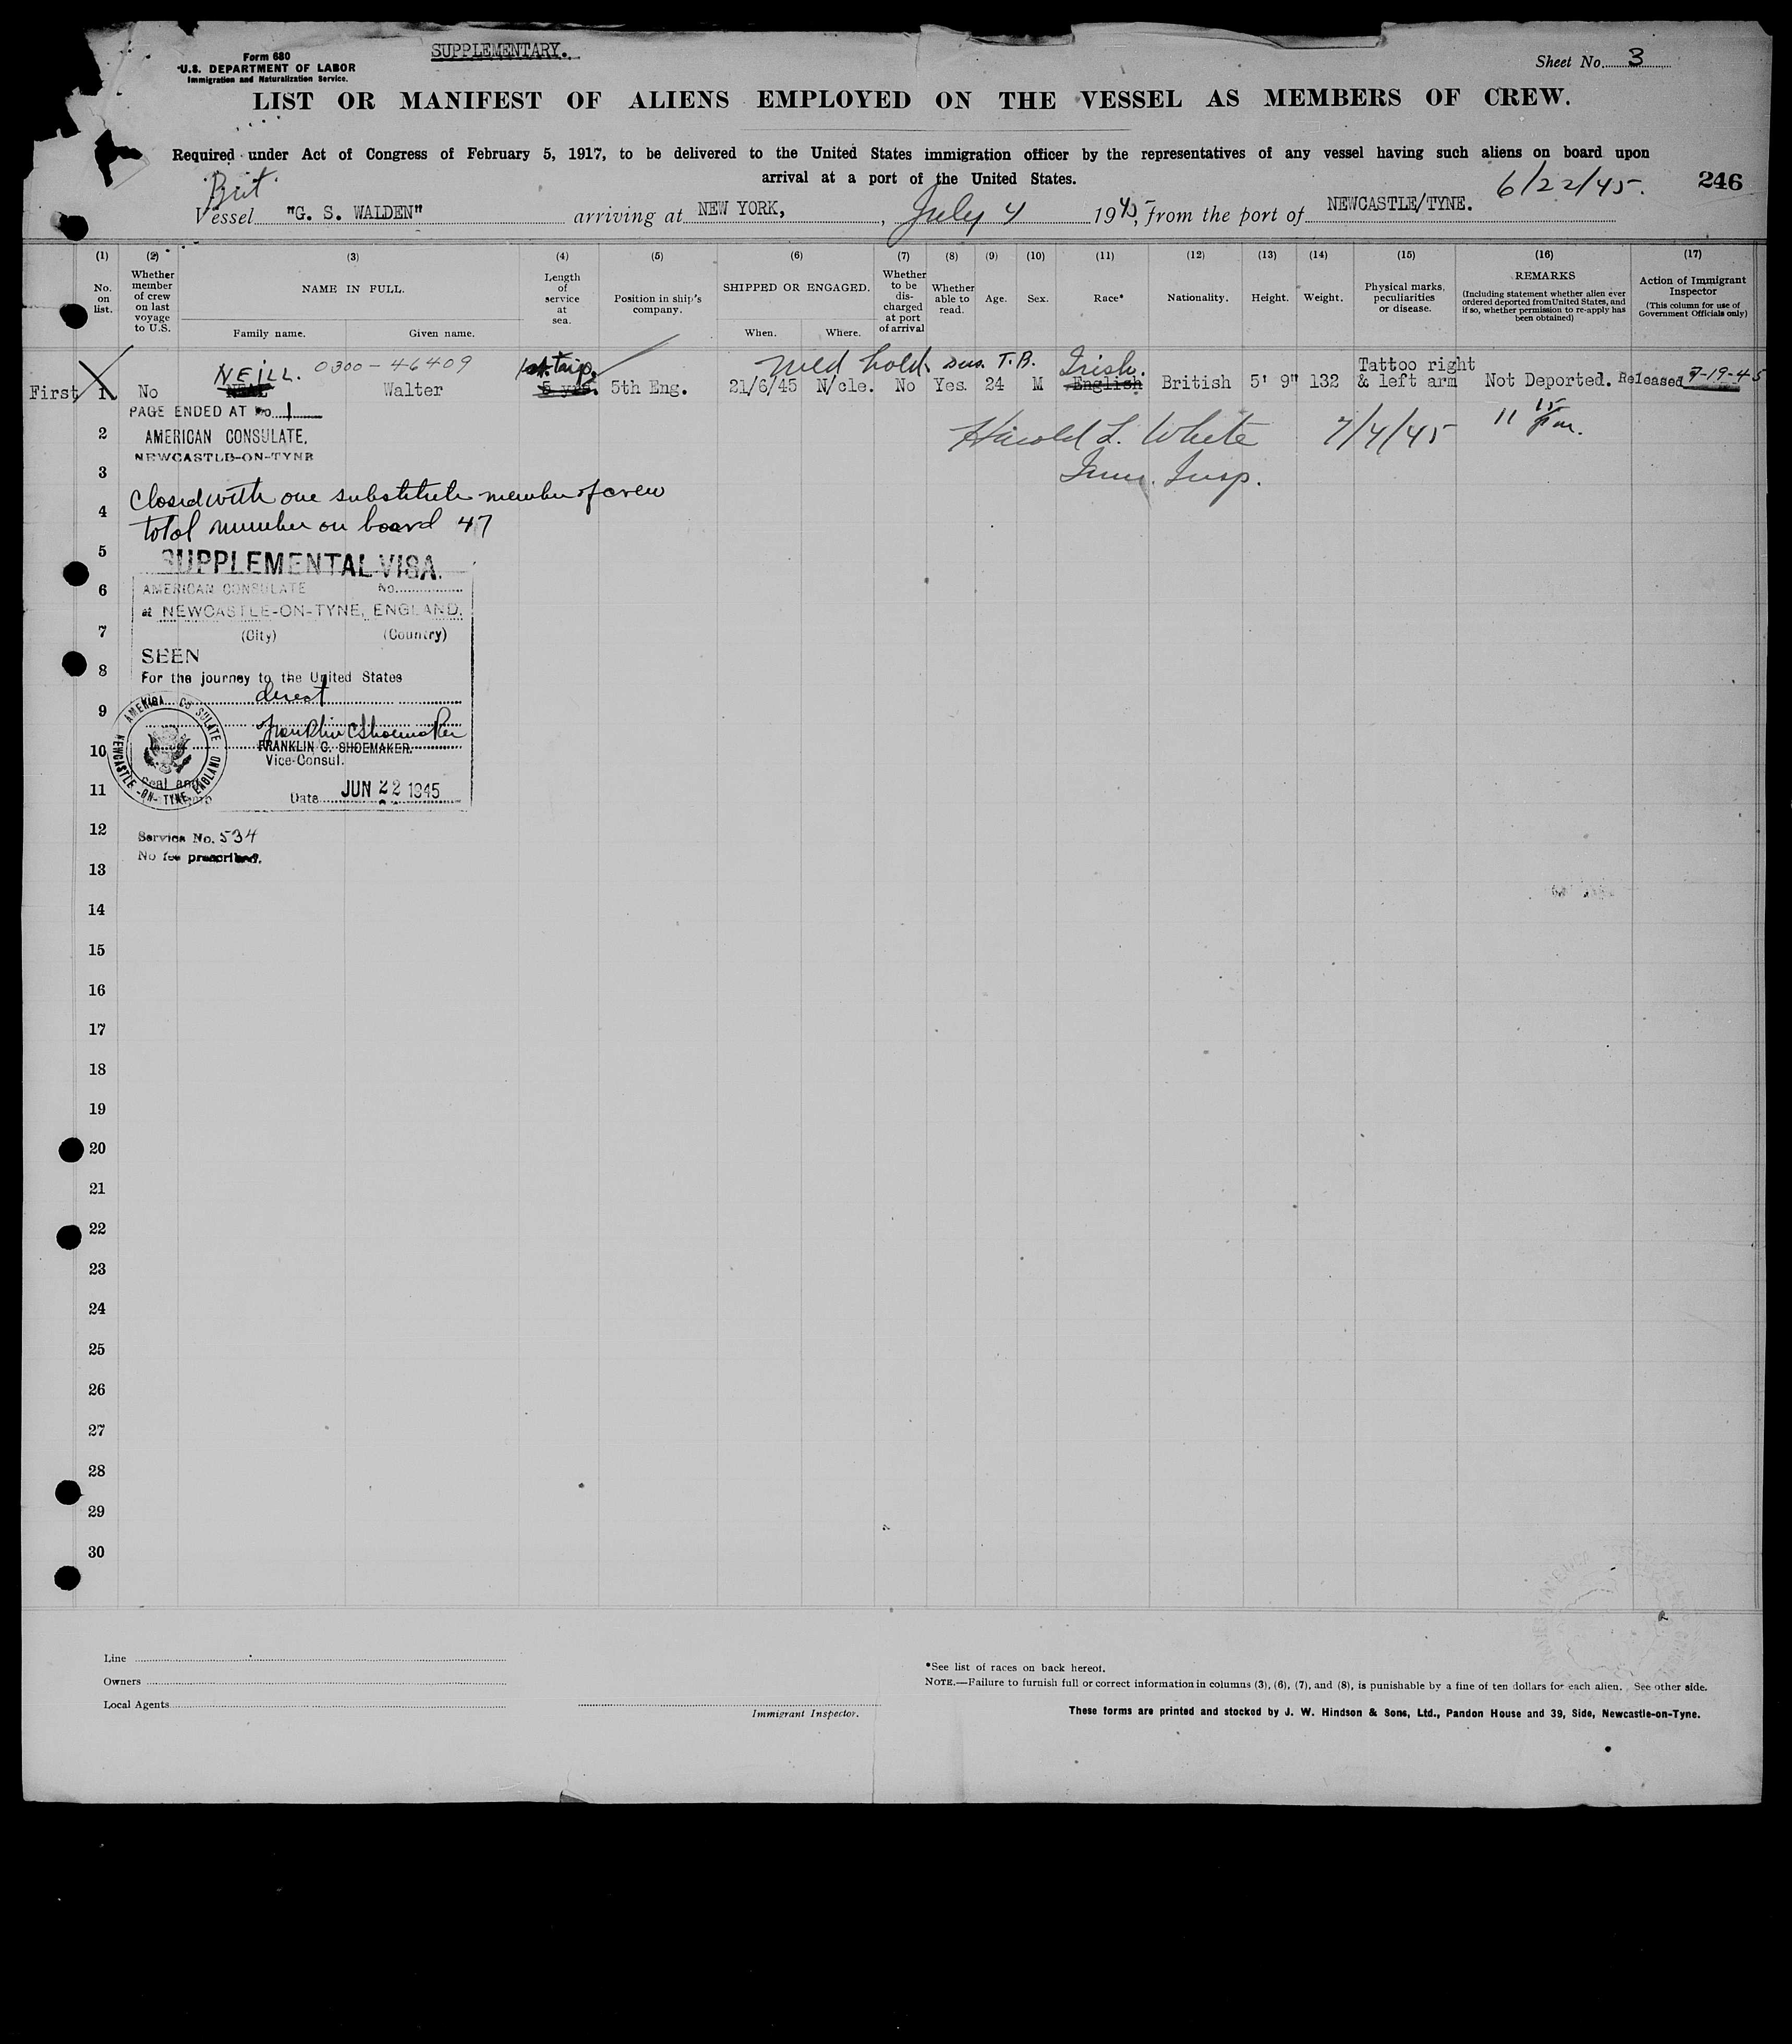 SUPPLEMENTARY.
Form 680
U.S. DEPARTMENT OF LABOR
Immigration and Naturalization Service.
Sheet No. 3
LIST OR MANIFEST OF ALIENS EMPLOYED ON THE VESSEL AS MEMBERS OF CREW.
Required under Act of Congress of February 5, 1917, to be delivered to the United States immigration officer by the representatives of any vessel having such aliens on board upon
arrival at a port of the United States.
6/22/45.
246
Brit
Vessel "G. S. WALDEN" arriving at NEW YORK, , July 4 1945, from the port of NEWCASTLE/TYNE.
(1) (2) (3) (4) (5) (6) (7) (8) (9) (10) (11) (12) (13) (14) (15) (16) (17)
No. on list.
Whether member of crew on last voyage to U.S.
NAME IN FULL.
Family name. Given name.
Length of service at sea.
Position in ship's company.
SHIPPED OR ENGAGED.
When. Where.
Whether to be discharged at port of arrival
Whether able to read.
Age.
Sex.
Race*
Nationality.
Height.
Weight.
Physical marks, peculiarities or disease.
REMARKS
(Including statement whether alien ever ordered deported from United States, and if so, whether permission to re-apply has been obtained)
Action of Immigrant Inspector
(This column for use of Government Officials only)
NEILL. 0300-46409 1st trip. Med hold. sus. T.B. Irish. Tattoo right
First 1 No Walter 5 yrs. 5th Eng. 21/6/45 N/cle. No Yes. 24 M English British 5' 9" 132 & left arm Not Deported. Released 7-19-45
PAGE ENDED AT No. 1
2 AMERICAN CONSULATE,
NEWCASTLE-ON-TYNE
Harold L. White 7/4/45 11 15 pm.
Imm. Insp.
3
Closed with one substitute member of crew
4
total number on board 47
5
SUPPLEMENTAL VISA.
6 AMERICAN CONSULATE No.
at NEWCASTLE-ON-TYNE, ENGLAND.
7 (City) (Country)
SEEN
8 For the journey to the United States
direct
9
Franklin C Shoemaker
10 FRANKLIN C. SHOEMAKER.
Vice-Consul.
AMERICAN CONSULATE
NEWCASTLE-ON-TYNE, ENGLAND
seal and
11 Date JUN 22 1945
12 Service No. 534
No fee prescribed.
13
14
15
16
17
18
19
20
21
22
23
24
25
26
27
28
29
30
Line
Owners
Local Agents
Immigrant Inspector.
*See list of races on back hereof.
NOTE.—Failure to furnish full or correct information in columns (3), (6), (7), and (8), is punishable by a fine of ten dollars for each alien. See other side.
These forms are printed and stocked by J. W. Hindson & Sons, Ltd., Pandon House and 39, Side, Newcastle-on-Tyne.